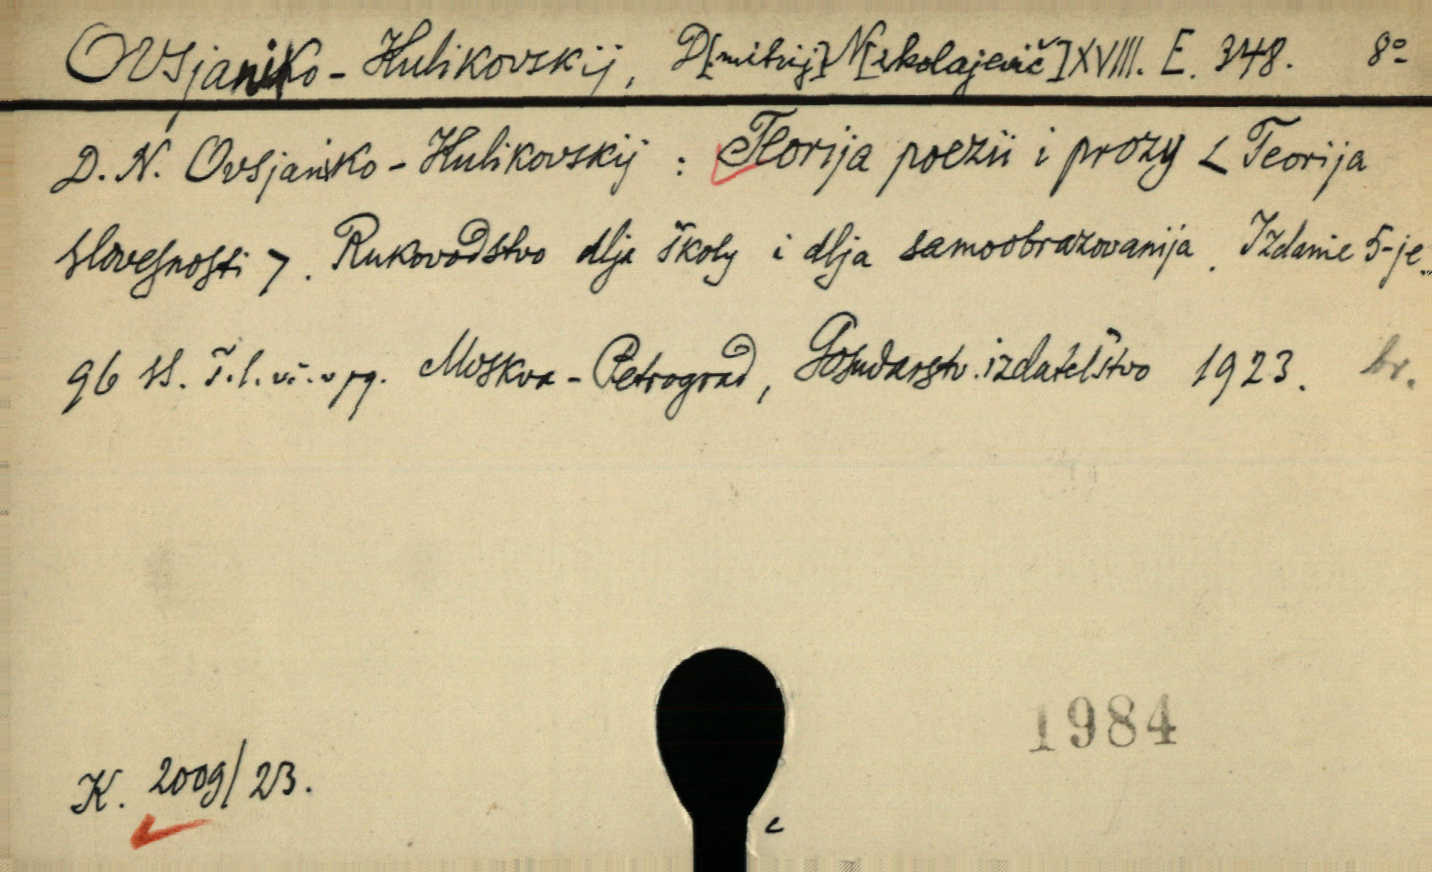 Ovsjaniko-Kulikovskij, D[mitrij] N[ikolajevič] XVIII. E. 348. 8º
D. N. Ovsjaniko-Kulikovskij: Teorija poezii i prozy < Teorija
slovesnosti >. Rukovodstvo dlja školy i dlja samoobrazovanija. Izdanie 5-je.
96 ss. T. l. vč. v pg. Moskva-Petrograd, Gosudarstv. izdatelštvo 1923. br.
1984
K. 2009/23.